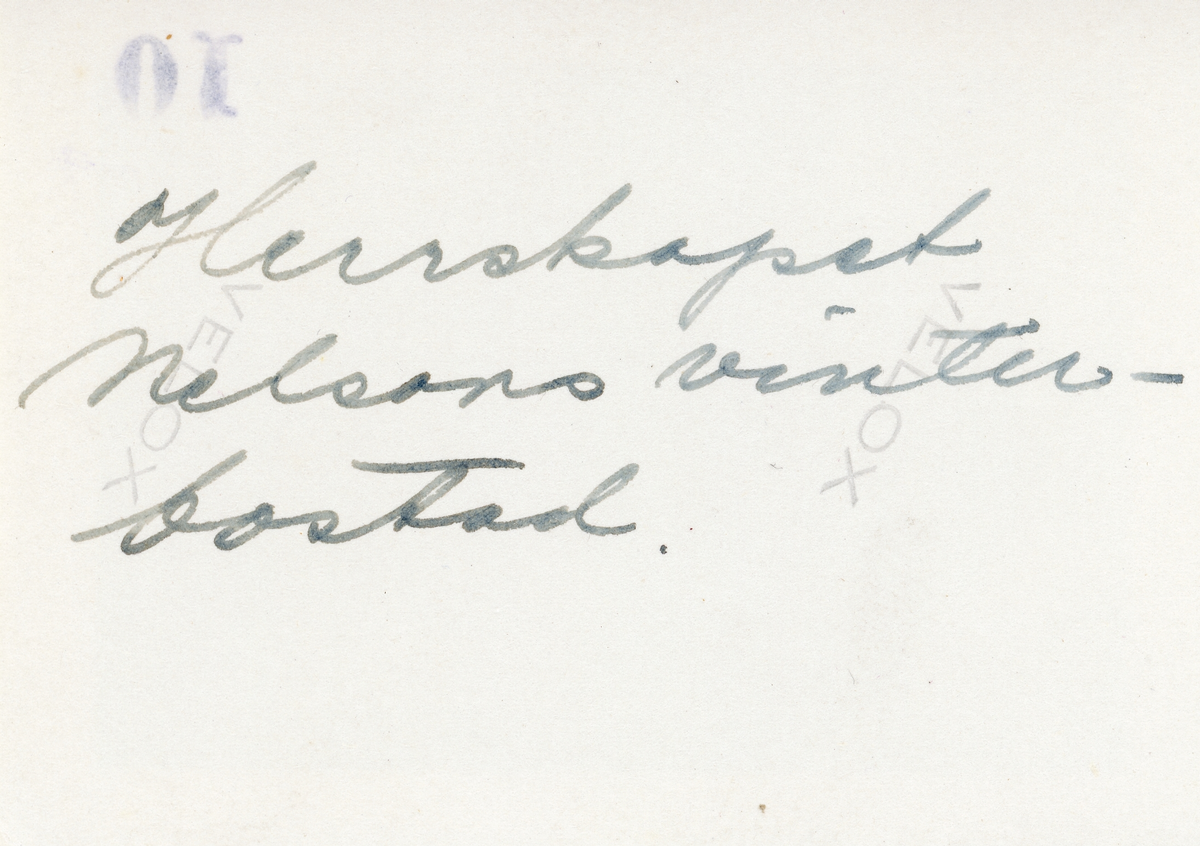 10
Herrskapet
Nelsons vinter-
bostad.
VELOX
VELOX